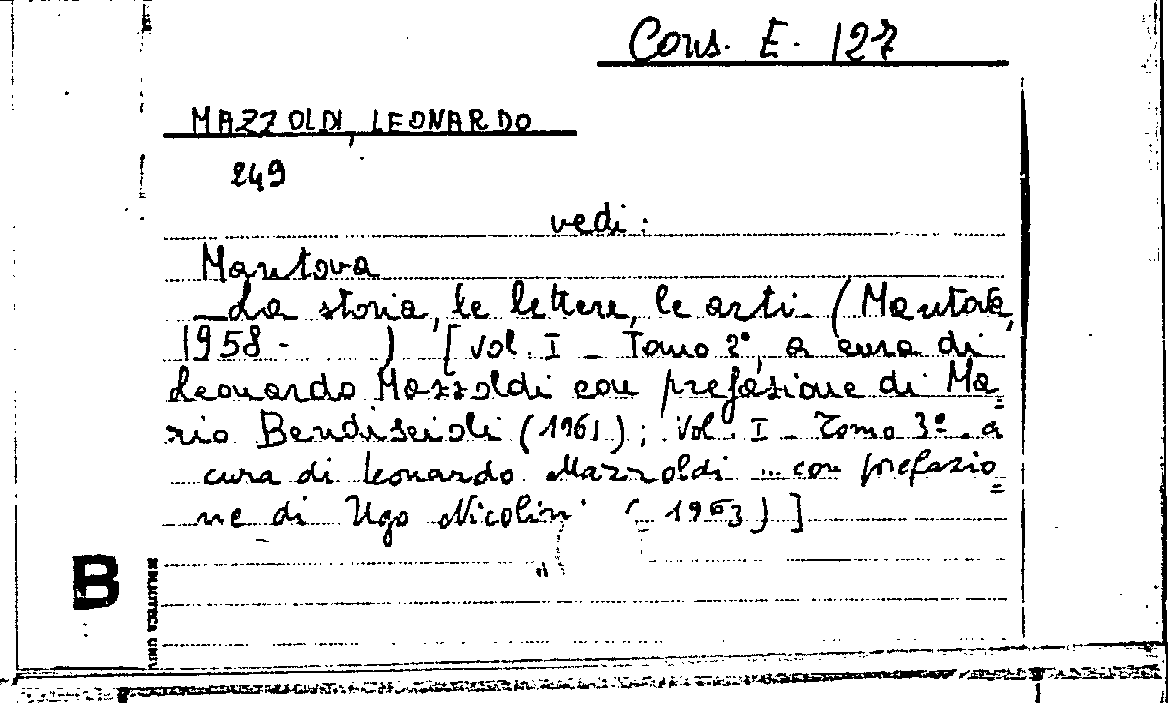 Cons. E. 127
MAZZOLDI, LEONARDO
249
vedi:
Mantova
_La storia, le lettere, le arti_ (Mantova,
1958- ) [Vol. I _ Tomo 2°, a cura di
Leonardo Mazzoldi con prefazione di Ma
rio Bendiscioli (1961); Vol. I _ Tomo 3° a
cura di Leonardo Mazzoldi ... con prefazio
ne di Ugo Nicolini (1963)]
B
BIBLIOTECA UNIV